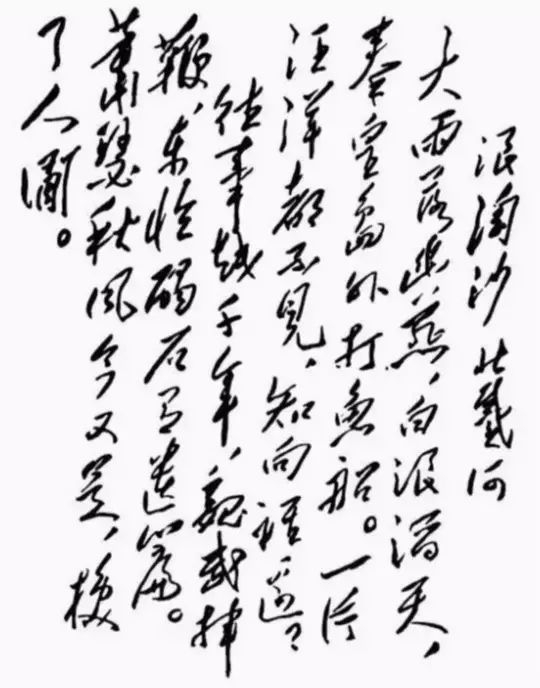 浪淘沙 北戴河
大雨落幽燕，白浪滔天，
秦皇島外打魚船。一片
汪洋都不見，知向誰邊？
往事越千年，魏武揮
鞭，东临碣石有遺篇。
蕭瑟秋風今又是，換
了人间。